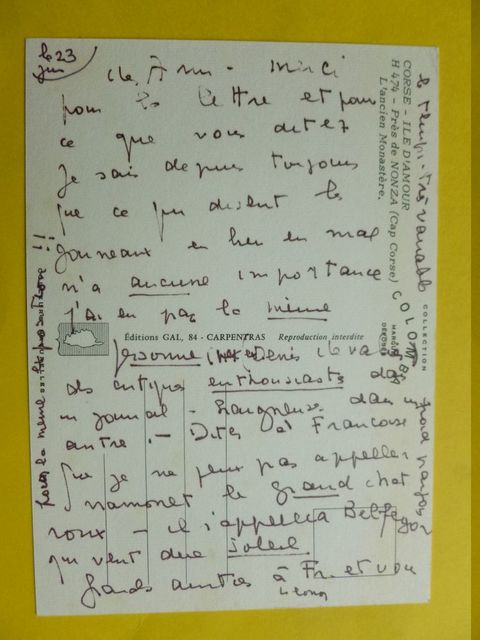 le 23
Juin
Merci
pour ta lettre et pour
ce que vous dites
Je sais depuis toujours
que ce que disent les
journeaux en bien en mal
n'a aucune importance
J'ai eu par la même
personne (
des critiques enthousiastes dans
un journal - hargneuse dans un
autre - Dites à Francoise
que je ne peux pas appeller
le grand chat
roux - il s'appellera Belfegor
qui veut dire soleil
à Fr. et vous
le temps - très variable
CORSE - ILE D'AMOUR
H 474 - Près de NONZA (Cap Corse)
L'ancien Monastère.
COLLECTION
COLOMBA
MARQUE
DÉPOSÉE
Éditions GAL, 84 - CARPENTRAS Reproduction interdite